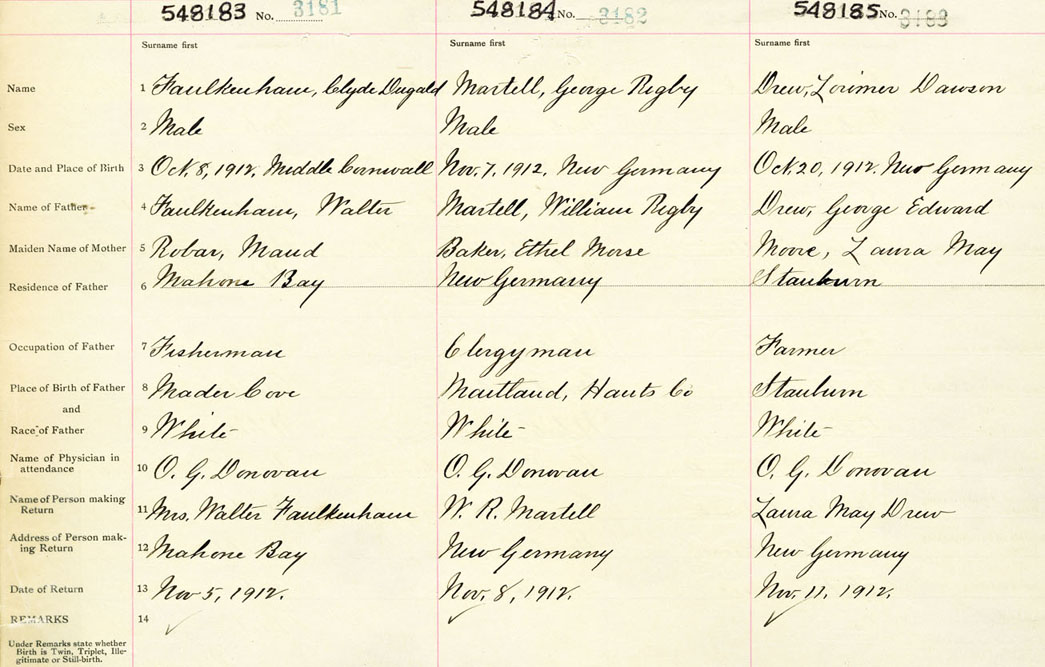 548183 No. 3181 548184 No. 3182 548185 No. 3183
Surname first Surname first Surname first
Name 1 Faulkenham, Clyde Dugald Martell, George Rigby Drew, Lorimer Dawson
Sex 2 Male Male Male
Date and Place of Birth 3 Oct. 8, 1912, Middle Cornwall Nov. 7, 1912, New Germany Oct 20, 1912. New Germany
Name of Father 4 Faulkenham, Walter Martell, William Rigby Drew, George Edward
Maiden Name of Mother 5 Robar, Maud Baker, Ethel Morse Moore, Laura May
Residence of Father 6 Mahone Bay New Germany Stanburn
Occupation of Father 7 Fisherman Clergyman Farmer
Place of Birth of Father 8 Mader Cove Maitland, Hants Co Stanburn
and
Race of Father 9 White White White
Name of Physician in
attendance 10 O. G. Donovan O. G. Donovan O. G. Donovan
Name of Person making
Return 11 Mrs. Walter Faulkenham W. R. Martell Laura May Drew
Address of Person mak-
ing Return 12 Mahone Bay New Germany New Germany
Date of Return 13 Nov 5, 1912. Nov. 8, 1912. Nov. 11, 1912.
REMARKS 14
Under Remarks state whether
Birth is Twin, Triplet, Ille-
gitimate or Still-birth.